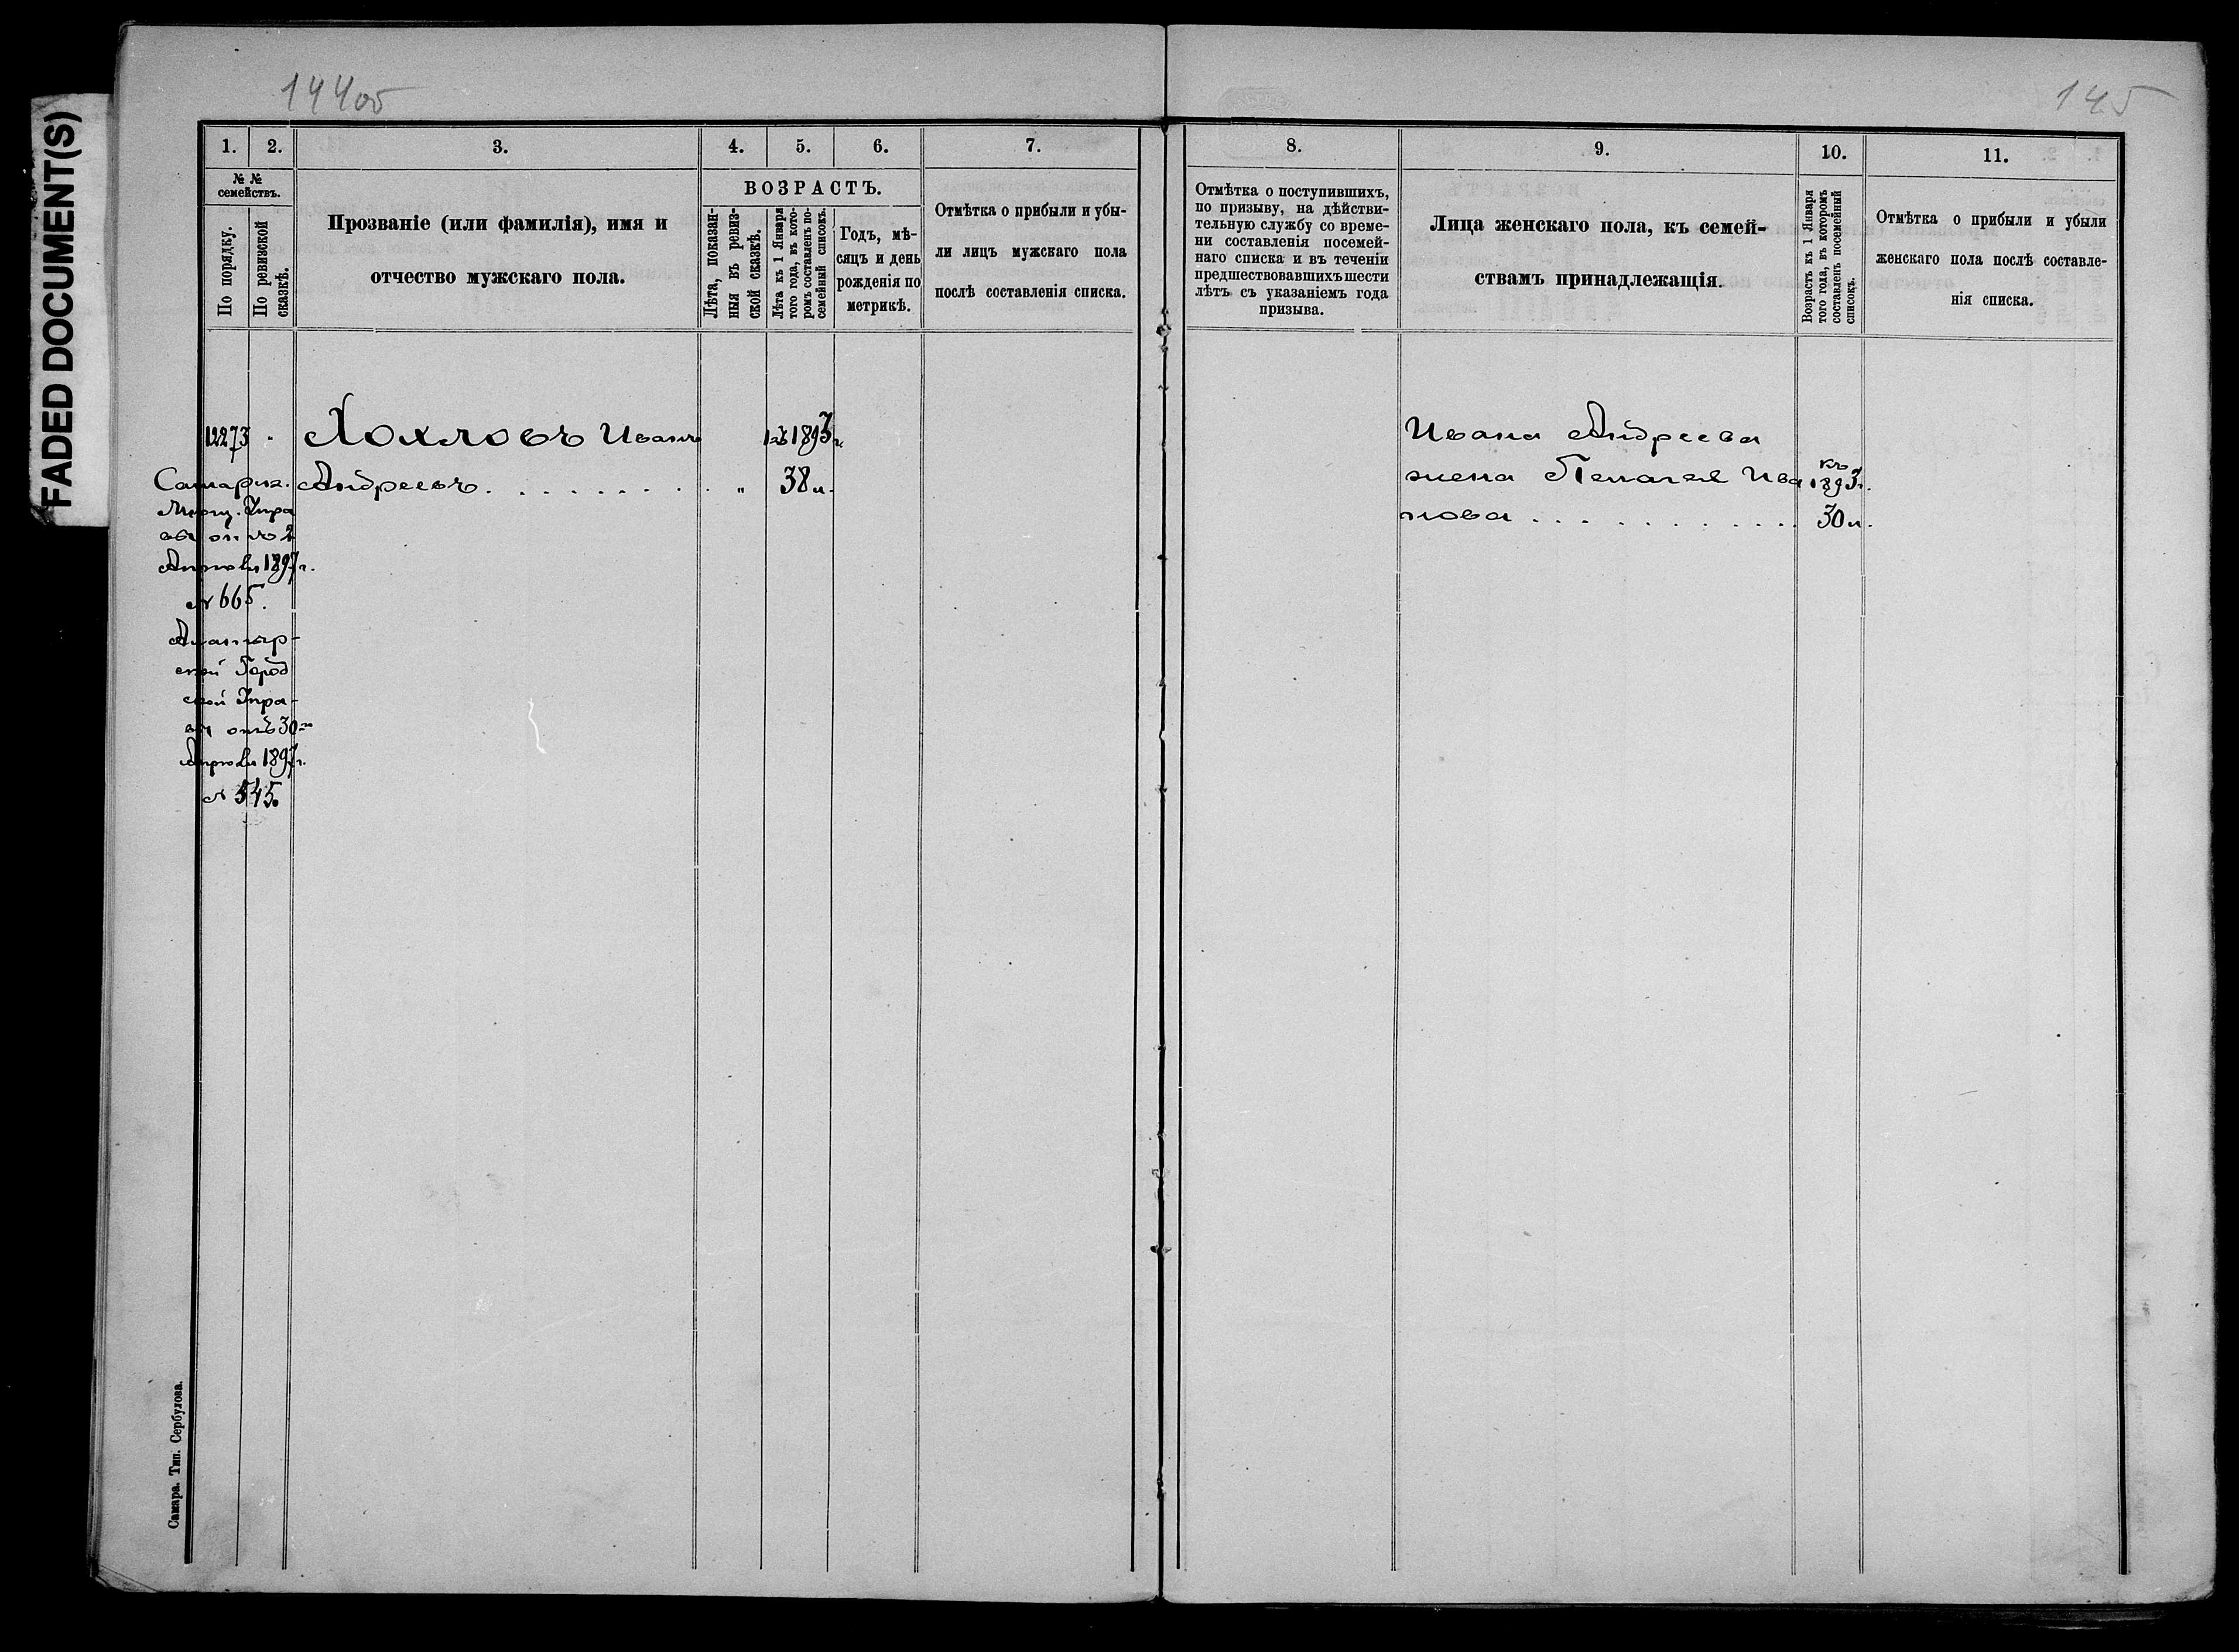 FADED DOCUMENT(S)
144об
145
1.
2.
3.
4.
5.
6.
7.
№ №
семействъ.
По порядку.
По ревизской
сказкѣ.
Прозваніе (или фамилія), имя и
отчество мужскаго пола.
ВОЗРАСТЪ.
Лѣта, показан-
ныя въ ревиз-
ской сказкѣ.
Лѣта къ 1 Января
того года, въ кото-
ромъ составленъ по-
семейный списокъ.
Годъ, мѣ-
сяцъ и день
рожденія по
метрикѣ.
Отмѣтка о прибыли и убы-
ли лицъ мужскаго пола
послѣ составленія списка.
12273
Хохловъ Иванъ
1893 г.
Андреевъ . . . . . . . . . "
38 л.
Самарск.
Мѣщ. Упра
вы отъ 2
Апрѣля 1897 г.
№ 665.
Алатыр-
ской Город
ской Упра-
вы отъ 30го
Апрѣля 1897 г.
№ 545.
Самара. Тип. Сербулова.
8.
9.
10.
11.
Отмѣтка о поступившихъ,
по призыву, на дѣйстви-
тельную службу со време-
ни составленія посемей-
наго списка и въ теченіи
предшествовавшихъ шести
лѣтъ съ указаніемъ года
призыва.
Лица женскаго пола, къ семей-
ствамъ принадлежащія.
Возрастъ къ 1 Января
того года, въ которомъ
составленъ посемейный
списокъ.
Отмѣтка о прибыли и убыли
женскаго пола послѣ составле-
нія списка.
Ивана Андреева
жена Пелагея Ива
нова . . . . . . . . . . .
къ
1893 г.
30 л.